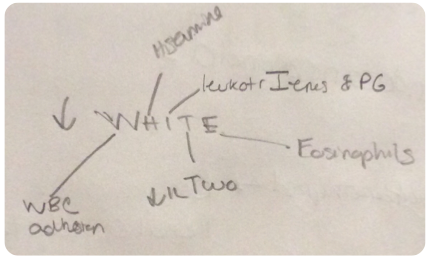 Histamine
leukotrIenes & PG
↓ WHITE
Eosinophils
↓ IL Two
WBC
adhesion